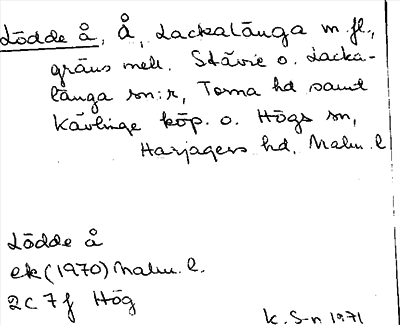 Lödde å, Å, Lackalänga m. fl.,
gräns mell. Stävie o. Lacka-
länga sn:r, Torna hd samt
Kävlinge köp. o. Högs sn,
Harjagers hd. Malm. l
Lödde å
ek (1970) Malm. l.
2C 7f Hög
K. S-n 1971